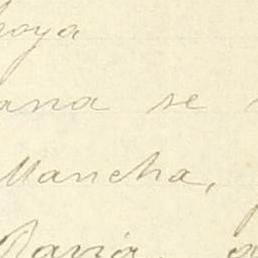 oya
ana se
Mancha,
Maria, a